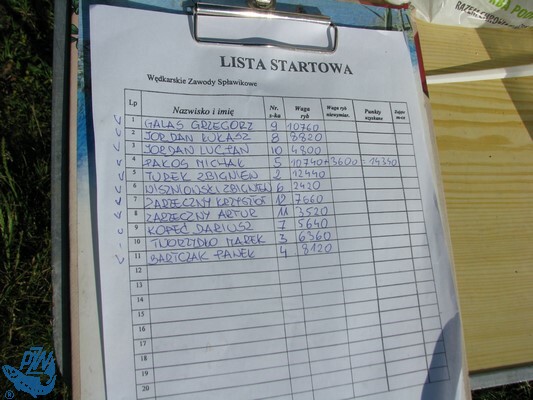 LISTA STARTOWA
Wędkarskie Zawody Spławikowe
Lp Nazwisko i imię Nr. s-ka Waga ryb Waga ryb niewymiar. Punkty uzyskane
1 GALAS GRZEGORZ 9 10760
2 JORDAN ŁUKASZ 8 8820
3 JORDAN LUCJAN 10 4800
4 PAKOS MICHAŁ 5 10740+3600=14340
5 TUREK ZBIGNIEW 2 12440
6 WISZNIOWSKI ZBIGNIEW 6 2420
7 ZARZECZNY KRZYSZTOF 12 7660
8 ZARZECZNY ARTUR 11 3520
9 KOPEĆ DARIUSZ 7 5640
10 TWORZYDŁO MAREK 3 6360
11 BARTCZAK PAWEŁ 4 8120
12
13
14
15
16
17
18
19
20
PZW
®